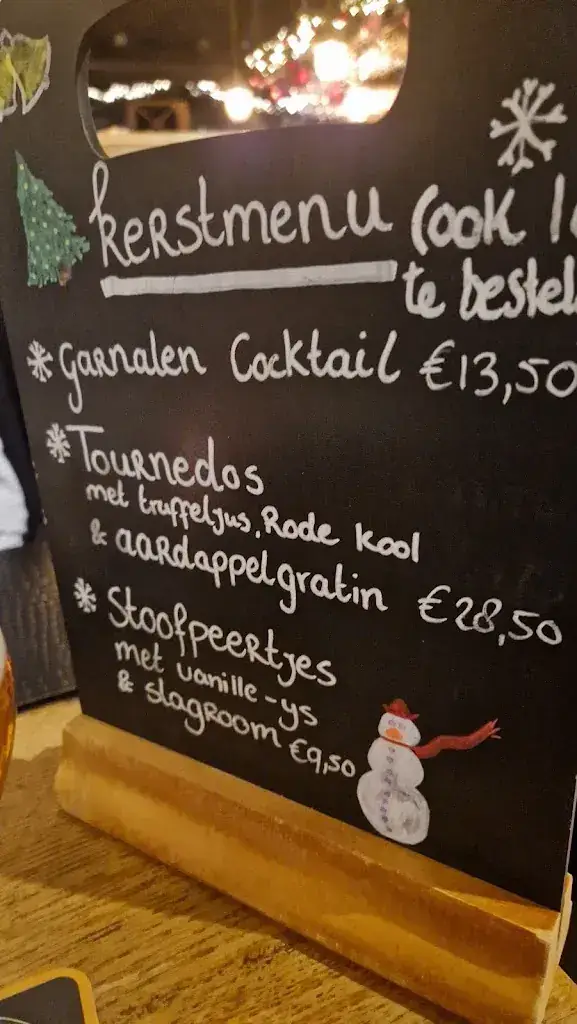 kerstmenu (ook
te bestel
Garnalen Cocktail €13,50
Tournedos
met truffeljus, Rode kool
& aardappelgratin €28,50
Stoofpeertjes
met vanille-ys
& slagroom €9,50